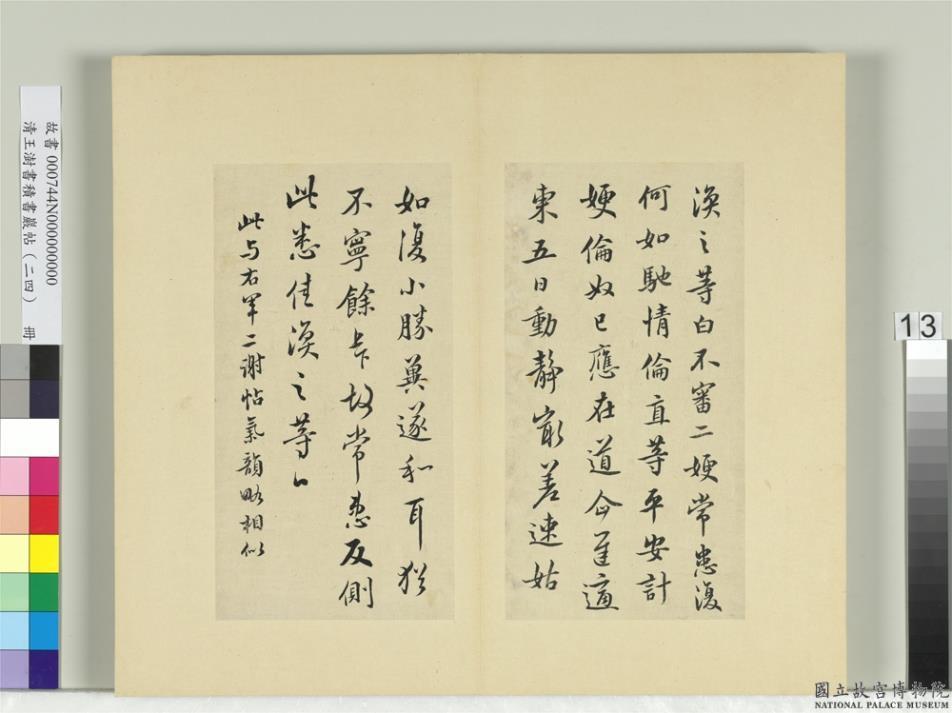 渙之等白不審二嫂常患復
何如馳情倫直等平安計
嫂倫奴已應在道今進適
東五日動靜寂差速姑
如復小勝冀遂和耳猶
不寧餘悉故常患反側
此悉佳渙之等白
此与右軍二謝帖氣韻略相似
故書 000744N000000000
清王澍書積書巖帖（二四） 冊
13
國立故宮博物院
NATIONAL PALACE MUSEUM